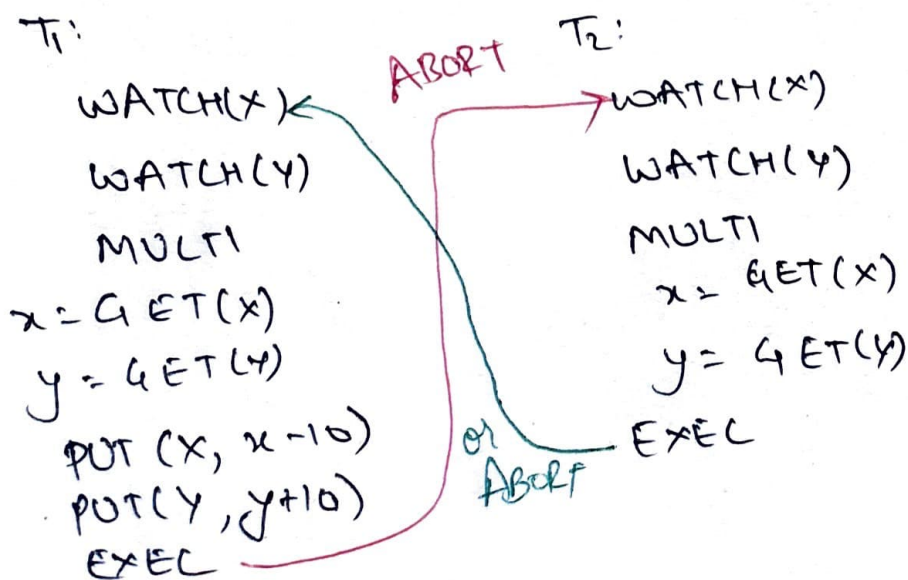 T1:
WATCH(X)
WATCH(Y)
MULTI
x = GET(X)
y = GET(Y)
PUT (X, x-10)
PUT(Y, y+10)
EXEC
ABORT
or
ABORT
T2:
WATCH(X)
WATCH(Y)
MULTI
x = GET(X)
y = GET(Y)
EXEC